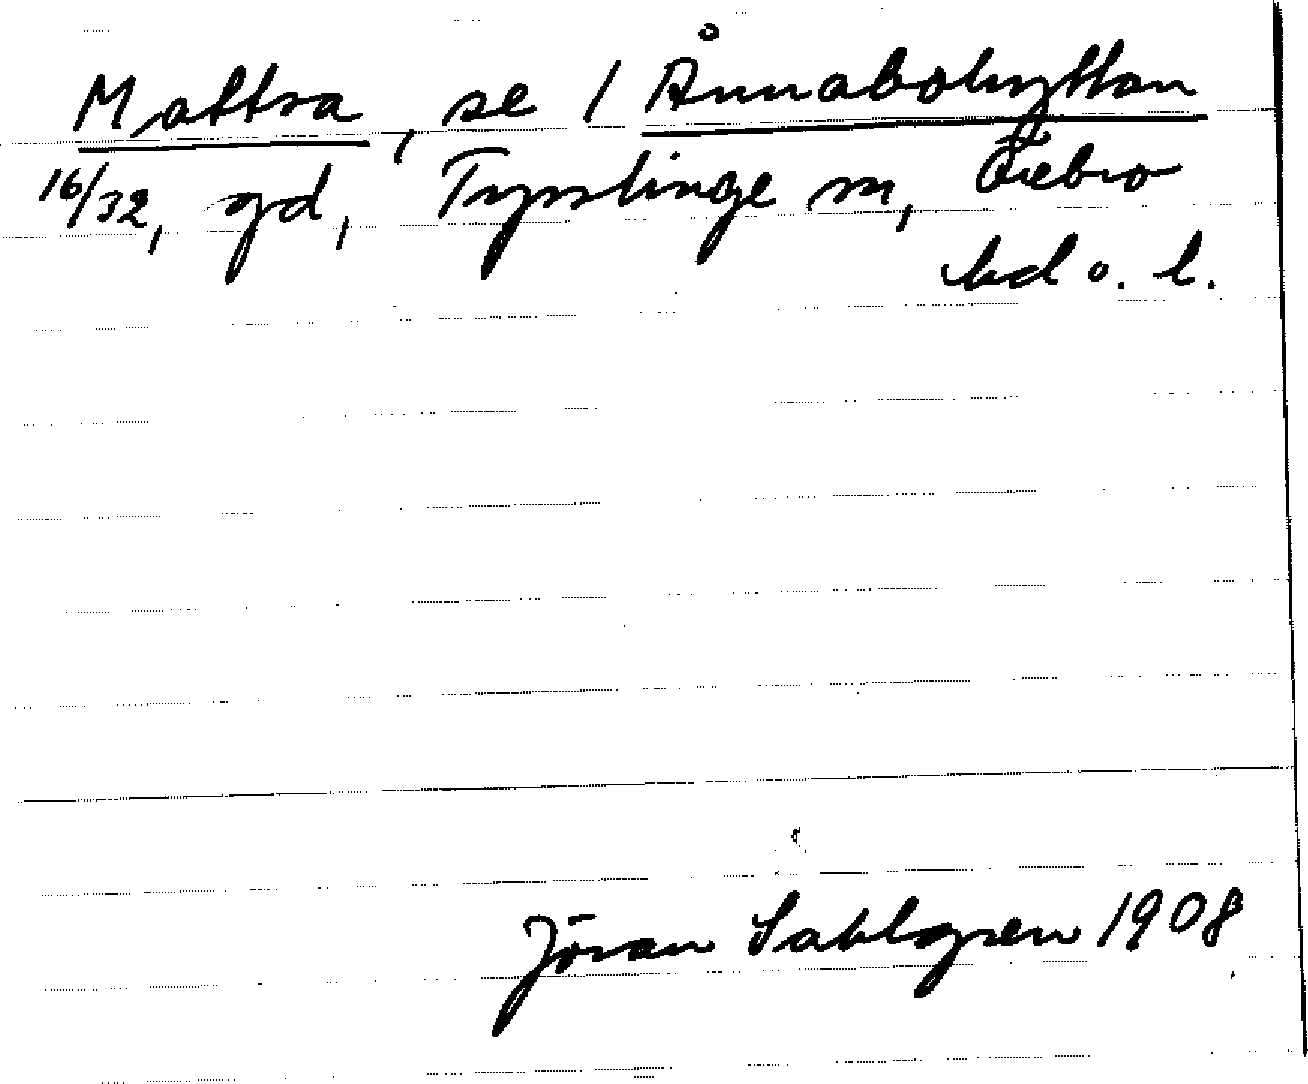 Mattra, se 1 Ånnabohyttan
16/32, gd, Tysslinge sn, Örebro
hd o. l.
Jöran Sahlgren 1908